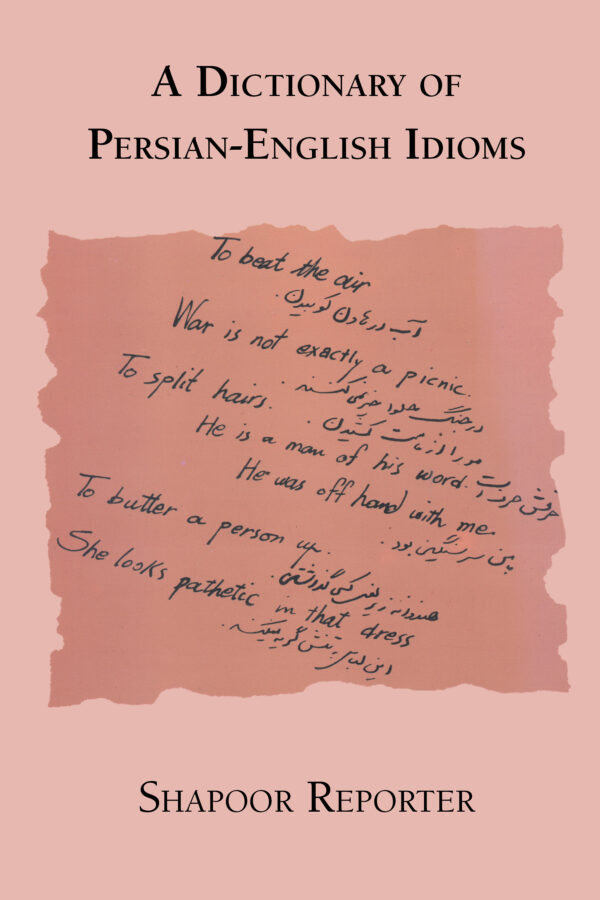 A Dictionary of
Persian-English Idioms
To beat the air
آب در هاون کوبیدن.
War is not exactly a picnic.
در جنگ حلوا خیر نمی‌کنند
To split hairs.
مو را از ماست کشیدن
He is a man of his word.
حرفش حرف است
He was off hand with me.
بمن سرسنگین بود.
To butter a person up.
هندوانه زیر بغل کسی گذاشتن.
She looks pathetic in that dress
این لباس بتنش گریه میکند.
Shapoor Reporter